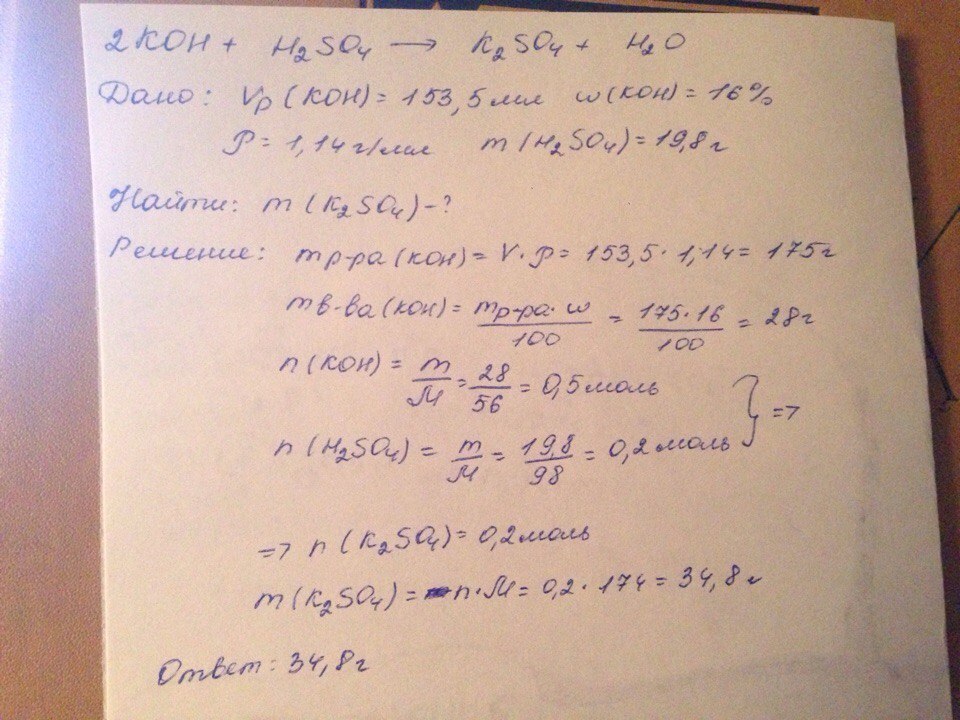 2KOH + H₂SO₄ → K₂SO₄ + H₂O
Дано: Vр (KOH) = 153,5 мл w(KOH) = 16%
ρ = 1,14 г/мл m (H₂SO₄) = 19,8 г
Найти: m (K₂SO₄) - ?
Решение: mр-ра (KOH) = V · ρ = 153,5 · 1,14 = 175 г
mв-ва (KOH) = mр-ра · w / 100 = 175 · 16 / 100 = 28 г
n (KOH) = m / M = 28 / 56 = 0,5 моль
n (H₂SO₄) = m / M = 19,8 / 98 = 0,2 моль } =>
=> n (K₂SO₄) = 0,2 моль
m (K₂SO₄) = n · M = 0,2 · 174 = 34,8 г
Ответ: 34,8 г